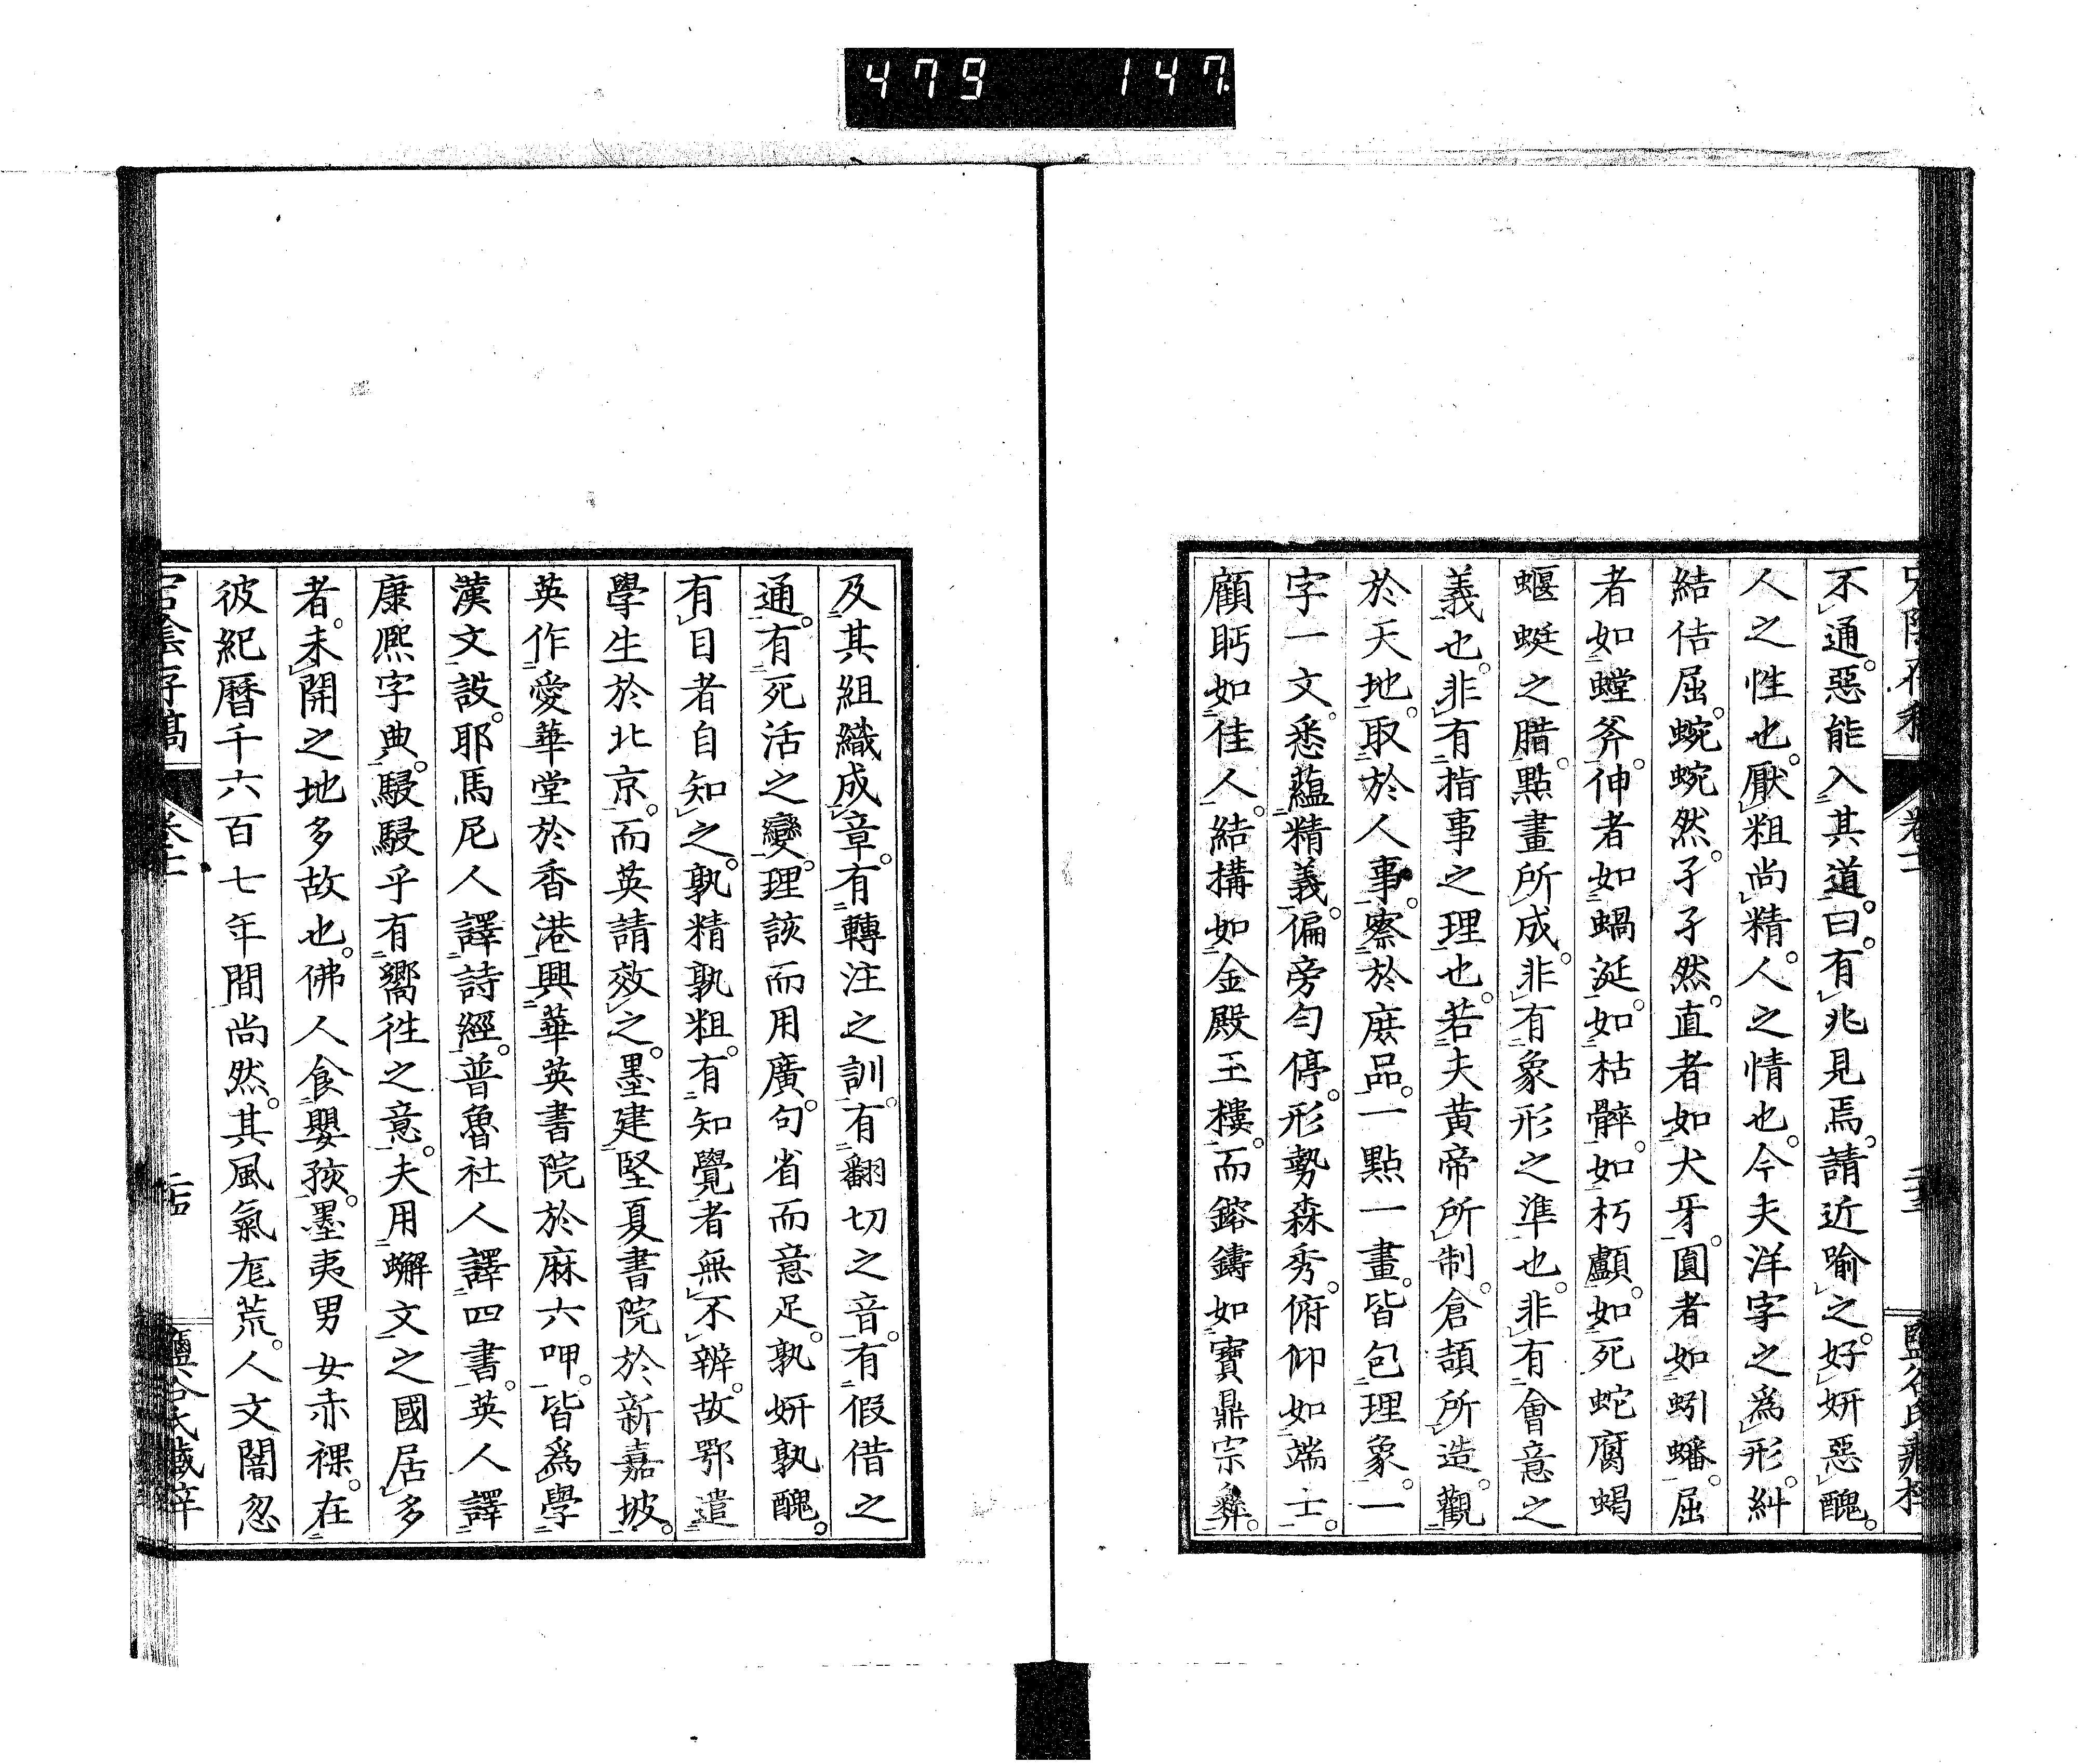 479 147.
不通。惡能入其道。曰。有兆見焉。請近喻之。好妍惡醜。
人之性也。厭粗尚精。人之情也。今夫洋字之爲形。糾
結佶屈。蜿蜿然。孑孑然。直者如犬牙。圓者如蚓蟠。屈
者如螳斧。伸者如蝸涎。如枯髒。如朽顱。如死蛇腐蝎
蝘蜓之腊。點畫所成。非有象形之準也。非有會意之
義也。非有指事之理也。若夫黄帝所制。倉頡所造。觀
於天地。取於人事。察於庶品。一點一畫。皆包理象。一
字一文。悉蘊精義。偏旁匀停。形勢森秀。俯仰如端士。
顧眄如佳人。結構如金殿玉樓。而鎔鑄如寶鼎宗彝。
及其組織成章。有轉注之訓。有翻切之音。有假借之
通。有死活之變。理該而用廣。句省而意足。孰妍孰醜。
有目者自知之。孰精孰粗。有知覺者無不辨。故鄂遣
學生於北京。而英請效之。墨建堅夏書院於新嘉坡。
英作愛華堂於香港。興華英書院於麻六呷。皆爲學
漢文設。耶馬尼人譯詩經。普魯社人譯四書。英人譯
康熈字典。駸駸乎有嚮徃之意。夫用蠏文之國居多
者。未開之地多故也。佛人食嬰孩。墨夷男女赤裸。在
彼紀曆千六百七年間尚然。其風氣尨荒。人文闇忽